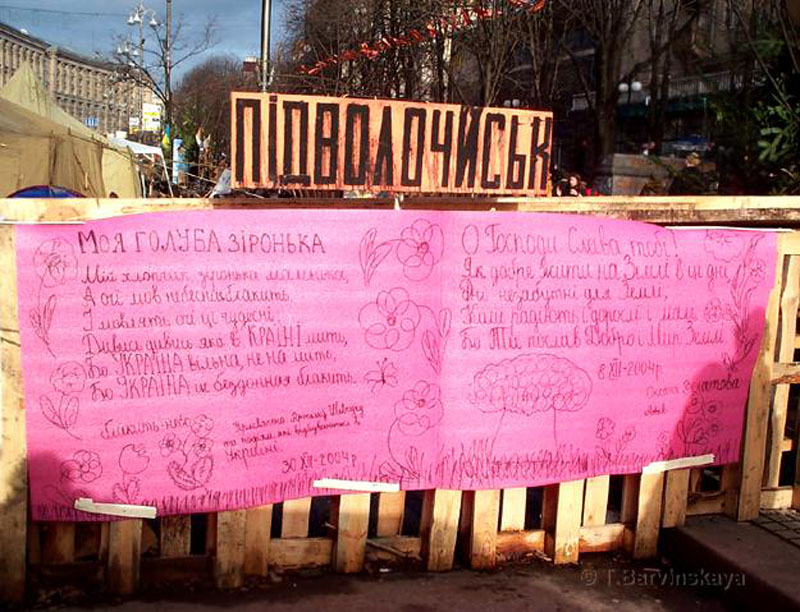 ПІДВОЛОЧИСЬК
Моя голуба зіронька
Мій хлопчик зіронька маленька,
А очі мов небесна блакить,
І мовлять очі ці чудесні
Дивись дивись яка в КРАЇНІ мить,
Бо УКРАЇНА вільна, не на мить,
Бо УКРАЇНА це бездонная блакить
Блакить-небо
та подіям які відбуваються в
Україні.
30 XII-2004р
О Господи Слава тобі!
Як добре жити на Землі в ці дні
Дні незабутні для Землі,
Бо Ти послав Добро і Мир Землі
8 XII-2004р
Оксана
Львів
© T.Barvinskaya